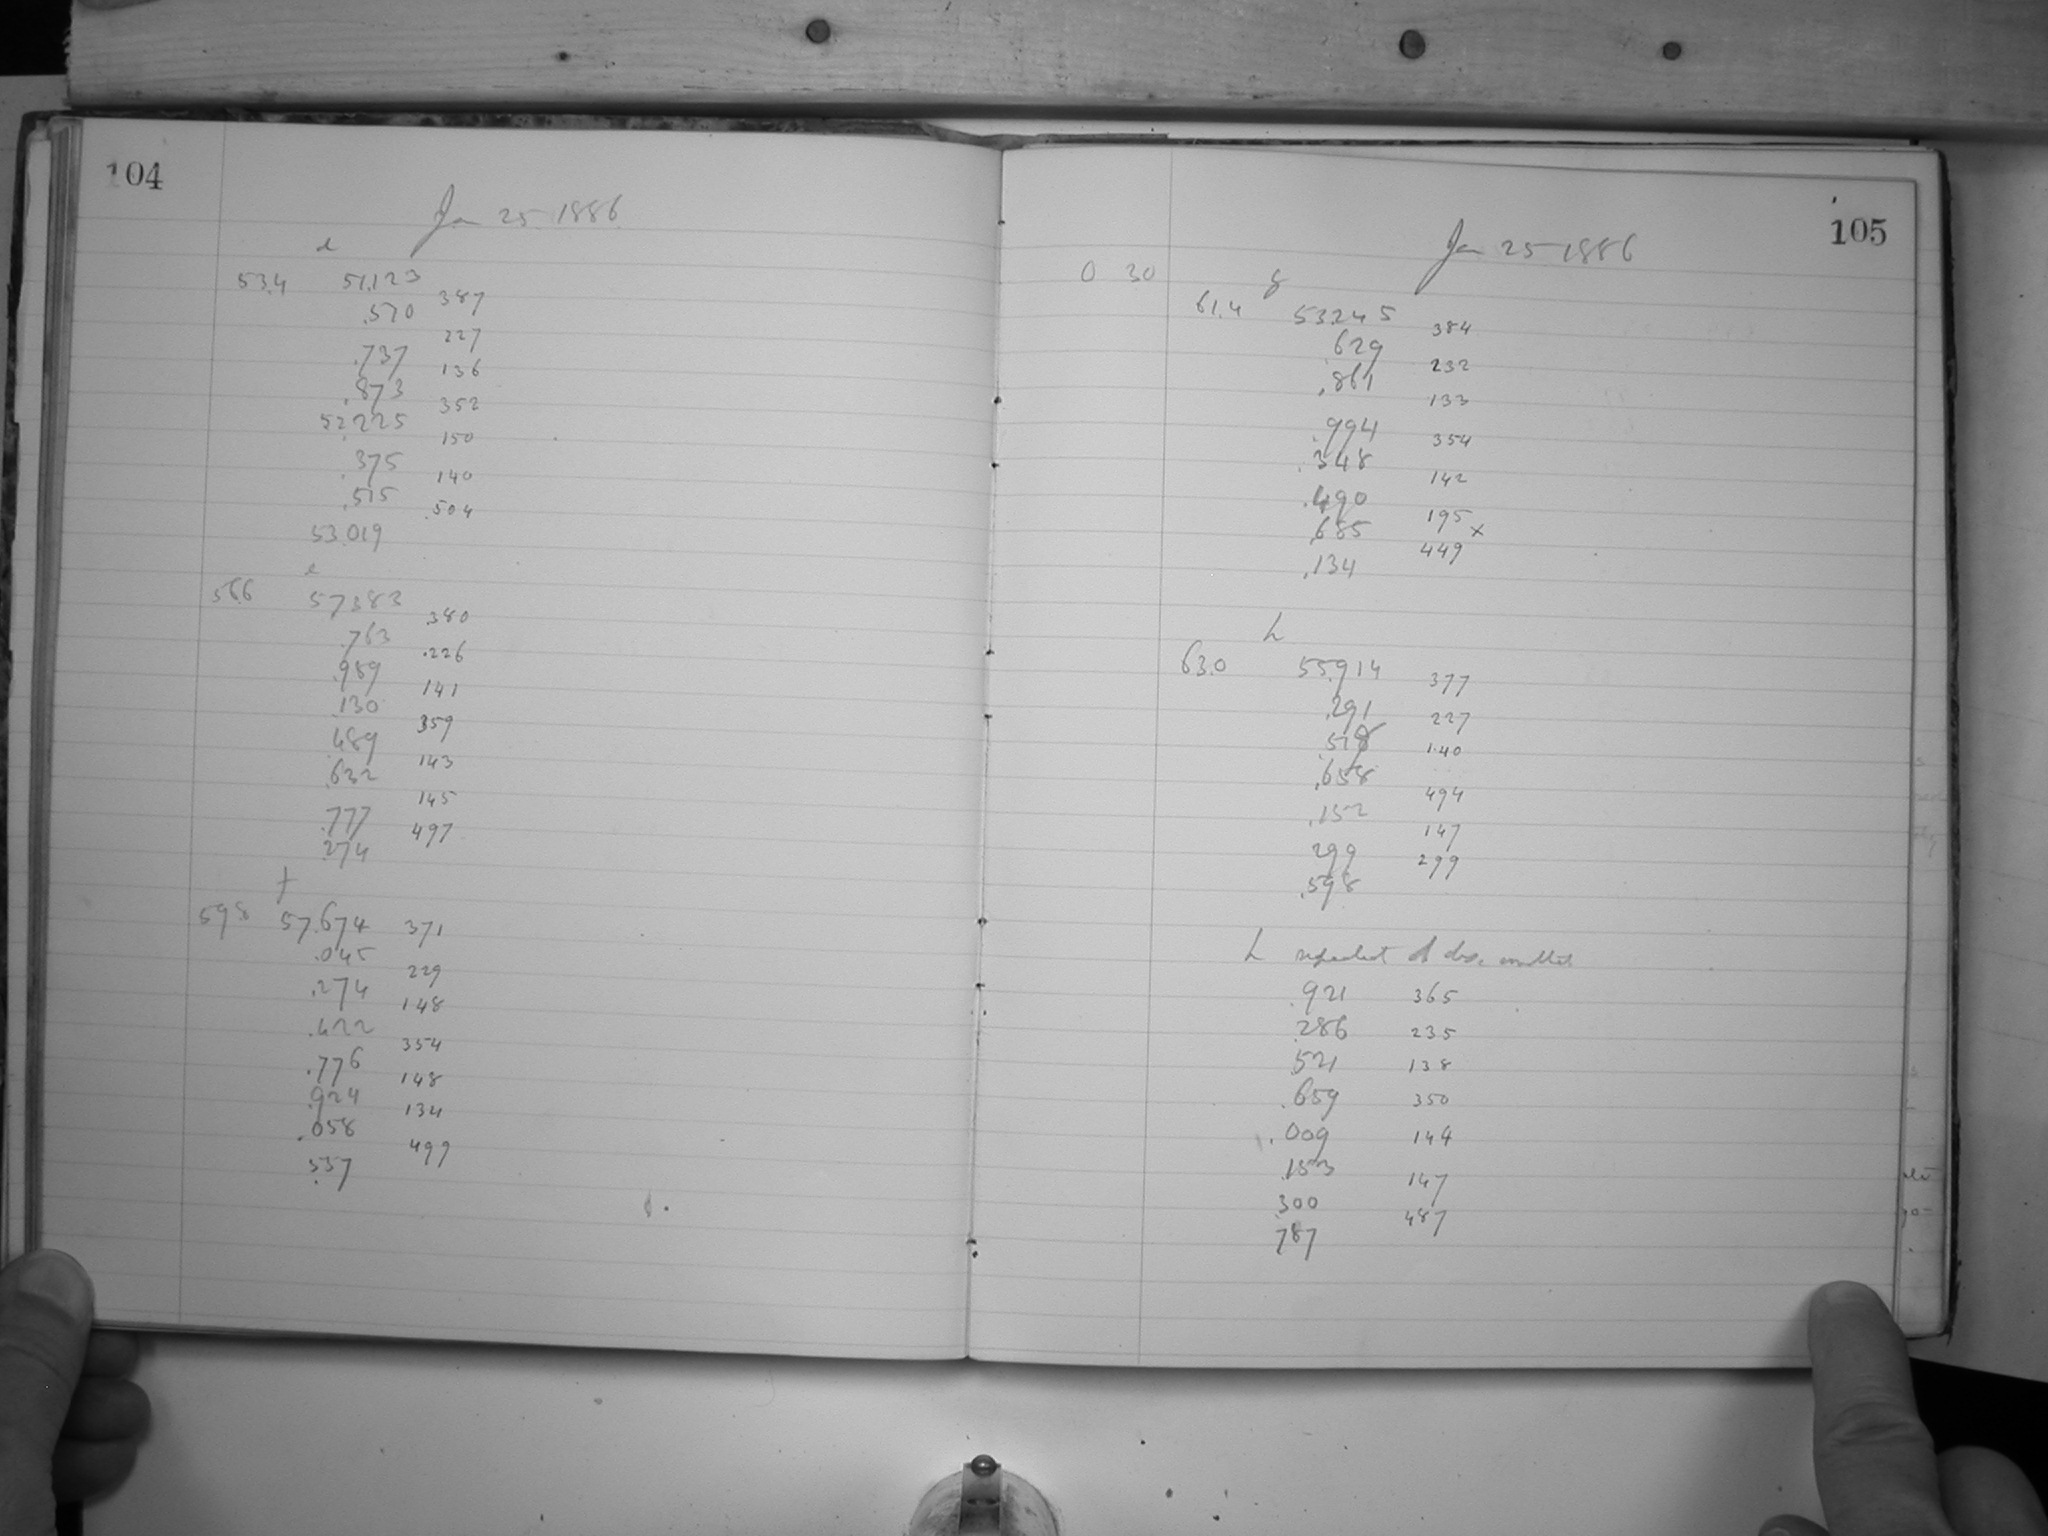 104
Jan 25 1886
d
53.4 51.123
387
.510
227
.737
136
.873
352
52.225
150
.375
140
.515
.504
53.019
e
56.6 57383
.380
.763
.226
.989
141
.130
359
.489
143
.632
145
.777
497
.274
f
59.8 57.674 371
.045
229
.274
148
.422
354
.776
148
.924
134
.058
499
.557
105
Jan 25 1886
0 30
g
61.4 53.245
384
.629
232
.861
133
.994
354
.348
142
.490
195 x
.685
449
.134
h
63.0 55.914
377
.291
227
.518
140
.658
494
.152
147
.299
299
.598
h repeated
.921 365
.286 235
.521 138
.659 350
.009 144
.153
147
.300
487
787